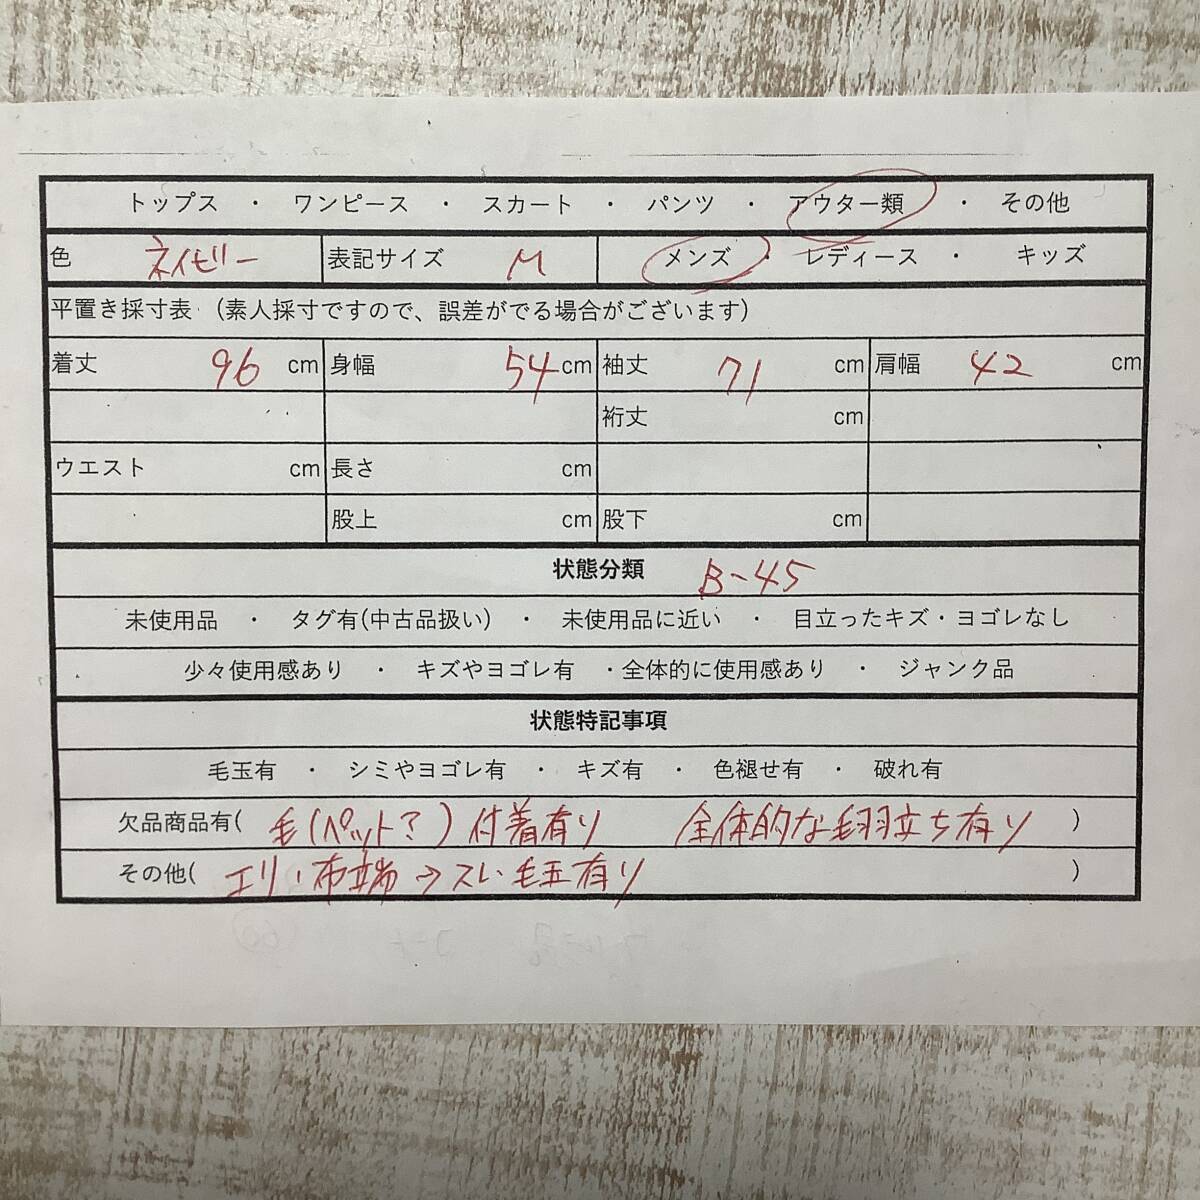 トップス ・ ワンピース ・ スカート ・ パンツ ・ アウター類 ・ その他
色 ネイビー 表記サイズ M メンズ ・ レディース ・ キッズ
平置き採寸表 (素人採寸ですので、誤差がでる場合がございます)
着丈 96 cm 身幅 54 cm 袖丈 71 cm 肩幅 42 cm
裄丈 cm
ウエスト cm 長さ cm
股上 cm 股下 cm
状態分類 B-45
未使用品 ・ タグ有(中古品扱い) ・ 未使用品に近い ・ 目立ったキズ・ヨゴレなし
少々使用感あり ・ キズやヨゴレ有 ・全体的に使用感あり ・ ジャンク品
状態特記事項
毛玉有 ・ シミやヨゴレ有 ・ キズ有 ・ 色褪せ有 ・ 破れ有
欠品商品有( 毛(ペット?)付着有り 全体的な毛羽立ち有り )
その他( エリ・布端→スレ・毛玉有り )